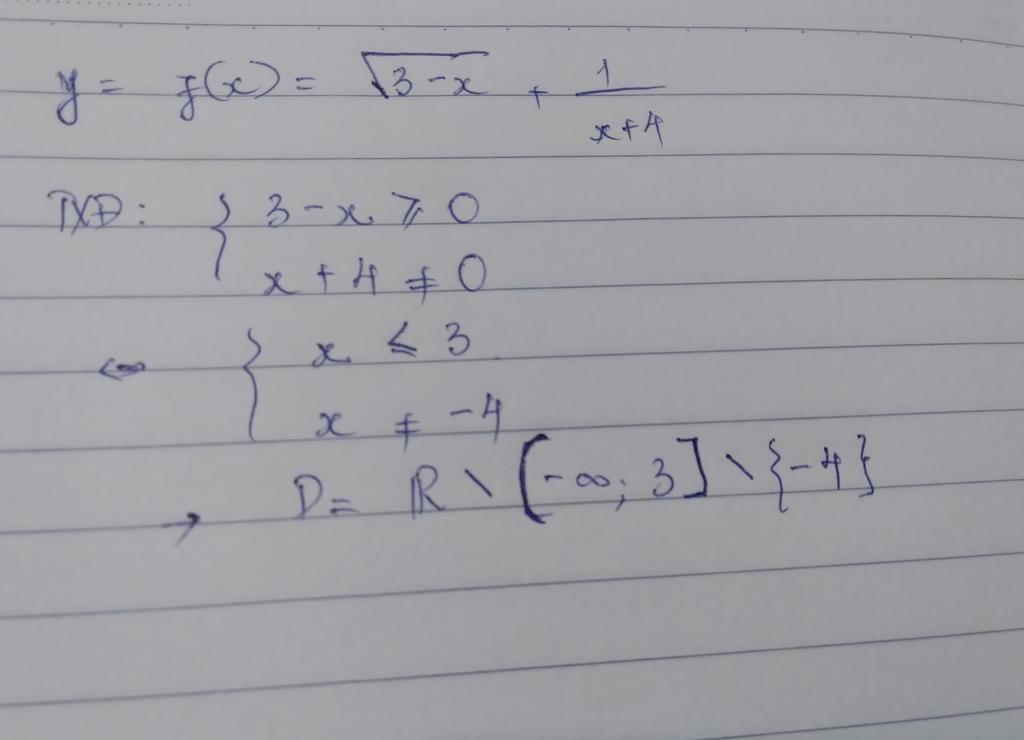 y = f(x) = √(3-x) + 1/(x+4)
TXĐ: { 3 - x ⩾ 0
x + 4 ≠ 0
⇔ { x ⩽ 3
x ≠ -4
→ D = ℝ \ [-∞; 3] \ {-4}